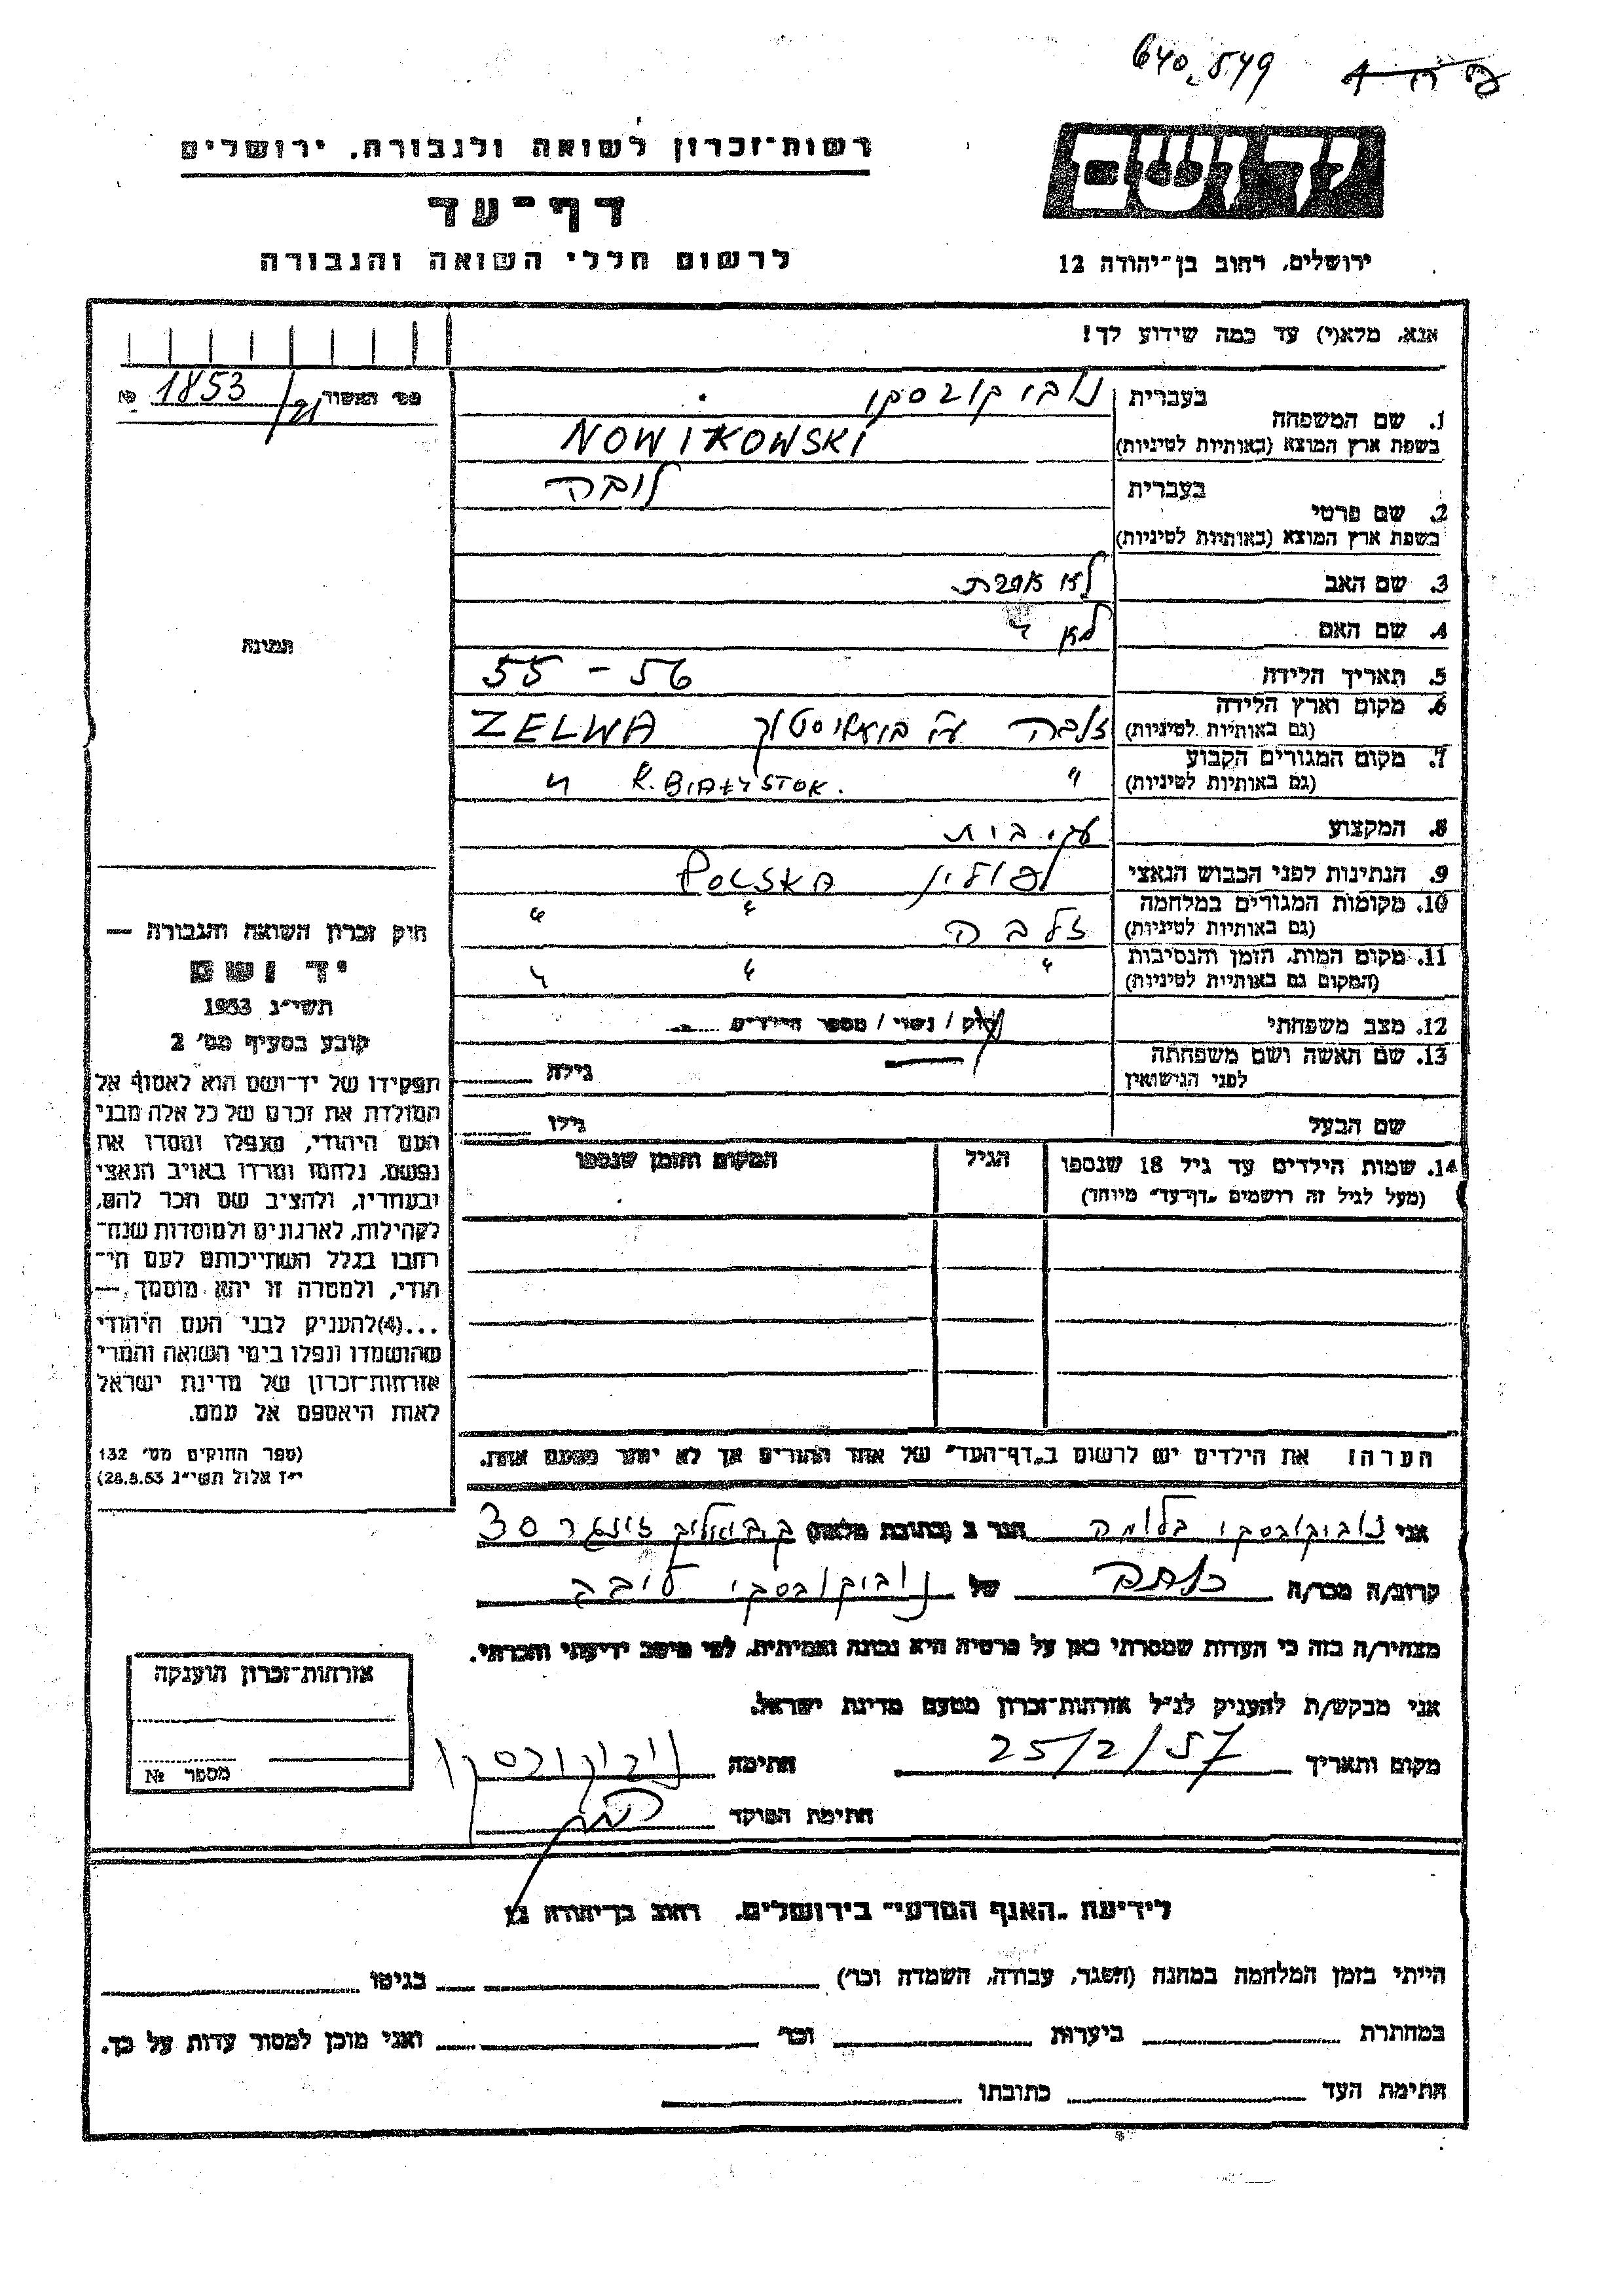 640,549
רשות־זכרון לשואה ולגבורה, ירושלים
יד ושם
דף־עד
לרשום חללי השואה והגבורה
ירושלים, רחוב בן־יהודה 12
אנא, מלא(י) עד כמה שידוע לך!
מס' האשור 1853 №
1. שם המשפחה
בעברית נוביקובסקי
בשפת ארץ המוצא (באותיות לטיניות) NOWIKOWSKI
2. שם פרטי
בעברית לובה
בשפת ארץ המוצא (באותיות לטיניות)
3. שם האב לא
4. שם האם לא "
5. תאריך הלידה 55 - 56
6. מקום וארץ הלידה זלבה ZELWA
(גם באותיות לטיניות)
7. מקום המגורים הקבוע " K. BIAŁYSTOK. "
(גם באותיות לטיניות)
8. המקצוע
9. הנתינות לפני הכבוש הנאצי פולין POLSKA
10. מקומות המגורים במלחמה זלבה " "
(גם באותיות לטיניות)
11. מקום המות, הזמן והנסיבות " " "
(המקום גם באותיות לטיניות)
12. מצב משפחתי רווק / נשוי / מספר הילדים
13. שם האשה ושם משפחתה גילה
לפני הנישואין
שם הבעל גילו
14. שמות הילדים עד גיל 18 שנספו הגיל המקום והזמן שנספו
(מעל לגיל זה רושמים "דף־עד" מיוחד)
הערה: את הילדים יש לרשום ב"דף־העד" של אחד ההורים אך לא יותר מפעם אחת.
תמונה
חוק זכרון השואה והגבורה —
יד ושם
תשי"ג 1953
קובע בסעיף מס' 2
תפקידו של יד־ושם הוא לאסוף אל
המולדת את זכרם של כל אלה מבני
העם היהודי, שנפלו ומסרו את
נפשם, נלחמו ומרדו באויב הנאצי
ובעוזריו, ולהציב שם וזכר להם,
לקהילות, לארגונים ולמוסדות שנח־
רבו בגלל השתייכותם לעם הי־
הודי, ולמטרה זו יהא מוסמך, —
...(4)להעניק לבני העם היהודי
שהושמדו ונפלו בימי השואה והמרי
אזרחות־זכרון של מדינת ישראל
לאות היאספם אל עמם.
(ספר החוקים מס' 132
י"ז אלול תשי"ג 28.8.53)
אני נוביקובסקי הגר ב (כתובת מלאה) 30
קרוב/ה מכר/ה של נוביקובסקי
מצהיר/ה בזה כי העדות שמסרתי כאן על פרטיה היא נכונה ואמיתית, לפי מיטב ידיעתי והכרתי.
אני מבקש/ת להעניק לנ"ל אזרחות־זכרון מטעם מדינת ישראל.
מקום ותאריך 25/2/57 חתימה נוביקובסקי
חתימת הפוקד
אזרחות־זכרון הוענקה
מספר №
לידיעת "האגף המדעי" בירושלים, רחוב בן־יהודה 12
הייתי בזמן המלחמה במחנה (הסגר, עבודה, השמדה וכו') בגיטו
במחתרת ביערות וכו' ואני מוכן למסור עדות על כך.
חתימת העד כתובתו